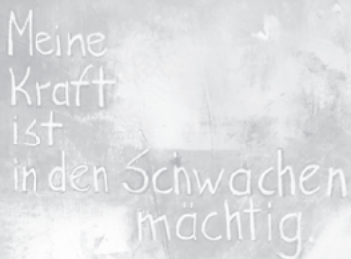 Meine
Kraft
ist
in den Schwachen
mächtig.